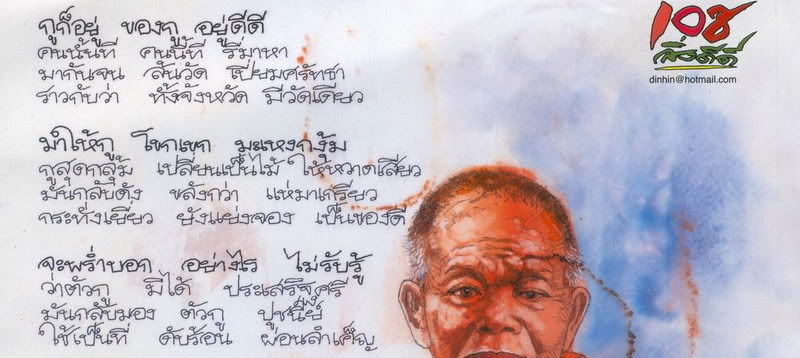 กูก็อยู่ ของกู อยู่ดีดี
คนนั้นที คนนี้ที รี่มาหา
มากันจน ล้นวัด เปี่ยมศรัทธา
ราวกับว่า ทั้งจังหวัด มีวัดเดียว
มาให้กู โขกเขก มะเหงกงุ้ม
กูสุดกลุ้ม เปลี่ยนเป็นไม้ ให้หวาดเสียว
มันกลับดัง ขลังกว่า แห่มาเกรียว
กระทั่งเยี่ยว ยังแย่งจอง เป็นของดี
จะพร่ำบอก อย่างไร ไม่รับรู้
ว่าตัวกู มิได้ ประเสริฐศรี
มันกลับมอง ตัวกู ปูชนีย์
ใช้เป็นที่ ดับร้อน ผ่อนลำเค็ญ
108
สิ่งดีดี
dinhin@hotmail.com